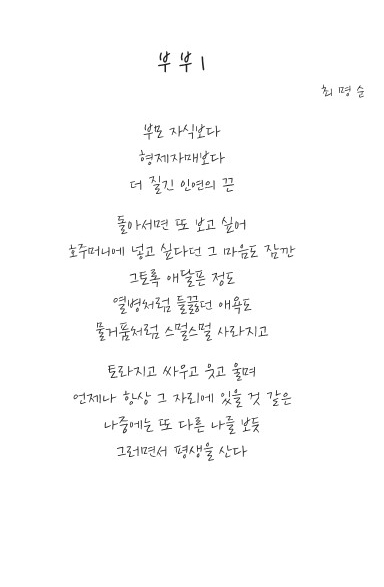 부부 1
최명순
부모 자식보다
형제자매보다
더 질긴 인연의 끈
돌아서면 또 보고 싶어
호주머니에 넣고 싶다던 그 마음도 잠깐
그토록 애달픈 정도
열병처럼 들끓던 애욕도
물거품처럼 스멀스멀 사라지고
토라지고 싸우고 웃고 울며
언제나 항상 그 자리에 있을 것 같은
나중에는 또 다른 나를 보듯
그러면서 평생을 산다